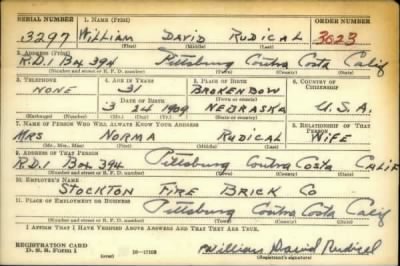 SERIAL NUMBER 1. NAME (Print) ORDER NUMBER
3297 WILLIAM DAVID RUDICAL 3023
(First) (Middle) (Last)
2. ADDRESS (Print)
R.D.1 Box 394 Pittsburg Contra Costa Calif
(Number and street or R. F. D. number) (Town) (County) (State)
3. TELEPHONE 4. AGE IN YEARS 5. PLACE OF BIRTH 6. COUNTRY OF CITIZENSHIP
NONE 31 BROKENBOW
DATE OF BIRTH (Town or county)
3 24 1909 NEBRASKA U.S.A.
(Exchange) (Number) (Mo.) (Day) (Yr.) (State or country)
7. NAME OF PERSON WHO WILL ALWAYS KNOW YOUR ADDRESS 8. RELATIONSHIP OF THAT PERSON
MRS NORMA RUDICAL WIFE
(Mr., Mrs., Miss) (First) (Middle) (Last)
9. ADDRESS OF THAT PERSON
R.D.1 Box 394 Pittsburg Contra Costa CALIF
(Number and street or R. F. D. number) (Town) (County) (State)
10. EMPLOYER'S NAME
STOCKTON FIRE BRICK CO
11. PLACE OF EMPLOYMENT OR BUSINESS
Pittsburg Contra Costa Calif
(Number and street or R. F. D. number) (Town) (County) (State)
I AFFIRM THAT I HAVE VERIFIED ABOVE ANSWERS AND THAT THEY ARE TRUE.
REGISTRATION CARD
D. S. S. Form 1 16-17105 William David Rudical
(Registrant's signature)